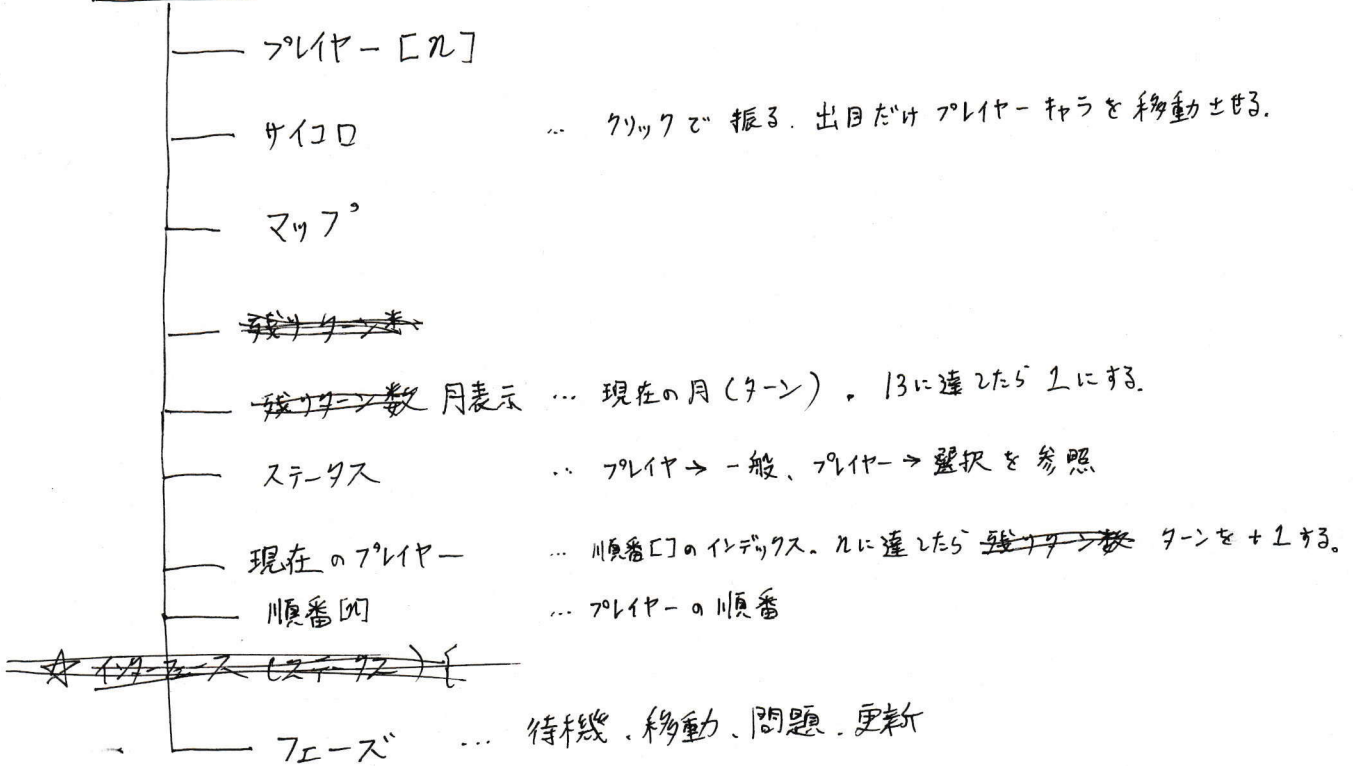 プレイヤー [n]
サイコロ … クリックで振る. 出目だけプレイヤーキャラを移動させる.
マップ
残りターン数
残りターン数 月表示 … 現在の月(ターン). 13に達したら1にする.
ステータス … プレイヤ→一般、プレイヤー→選択を参照
現在のプレイヤー … 順番[]のインデックス。nに達したら 残りターン数 ターンを+1する。
順番[n] … プレイヤーの順番
☆ インターフェース (ステータス) {
フェーズ … 待機、移動、問題、更新